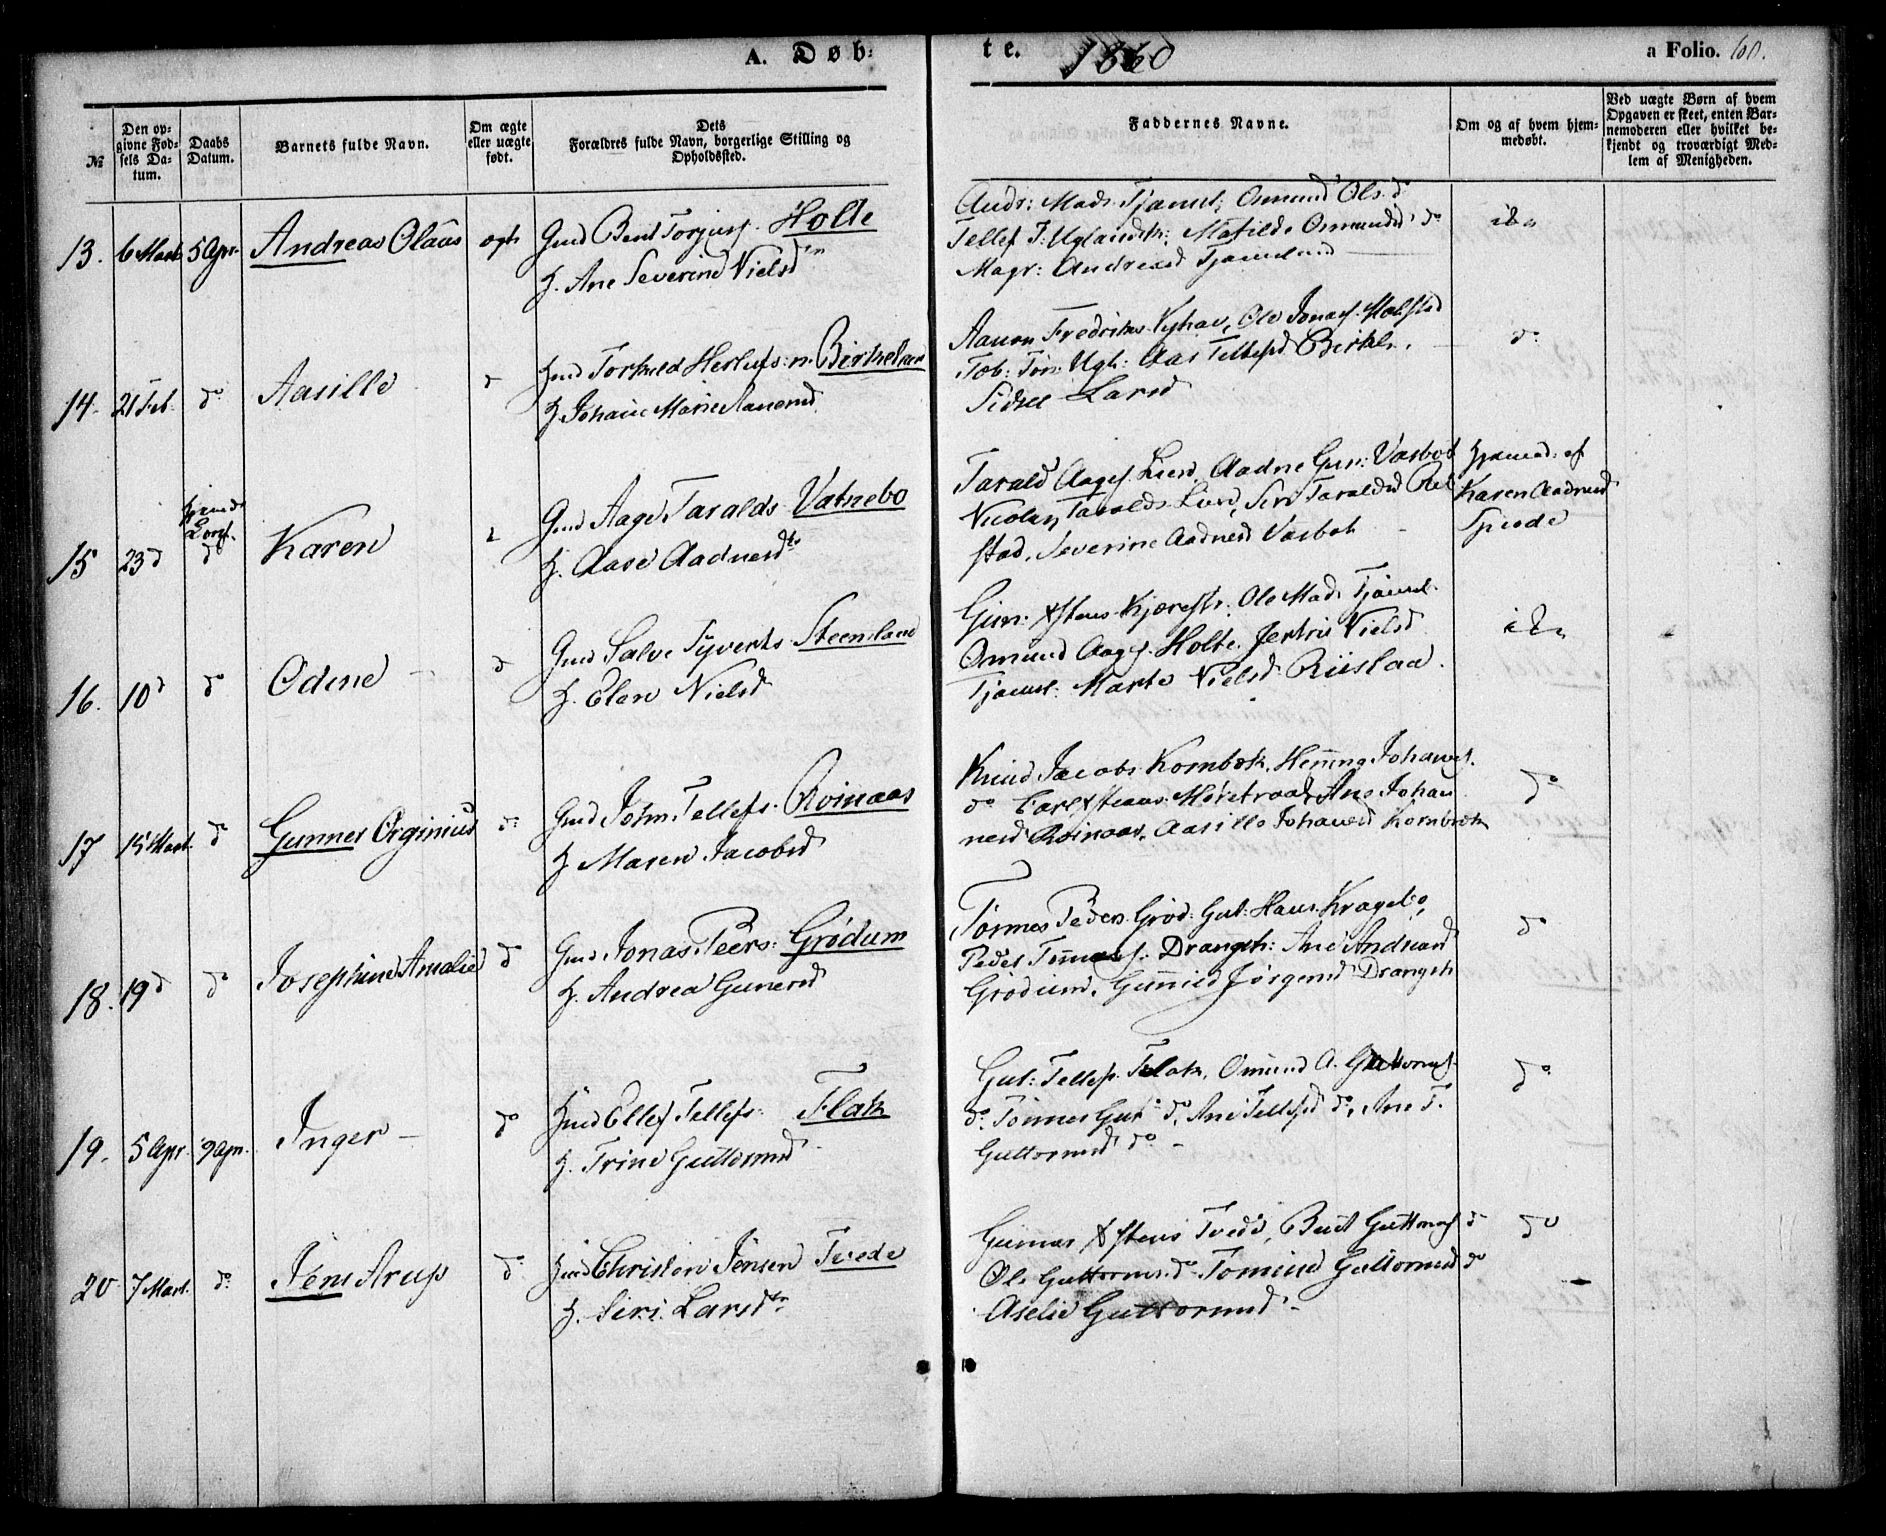 A. Døb-
te. 1860
a Folio. 60.
№
Den op-
givne Fød-
sels Da-
tum.
Daabs
Datum.
Barnets fulde Navn.
Om ægte
eller uægte
født.
Dets
Forældres fulde Navn, borgerlige Stilling og
Opholdssted.
Faddernes Navne.
Om og af hvem hjem-
medøbt.
Ved uægte Børn af hvem
Opgaven er skeet, enten Bar-
nemoderen eller hvilket be-
kjendt og troværdigt Med-
lem af Menigheden.
13. 6 Mart 5 Apr. Andreas Olaus ægte
Gmd Bent Torjus. Holte
H. Ane Severine Nielsd
Andr: Mads. Tjaml: Osmund Ols. do
Tellef T: Uglandsk: Matilde Osmundsd do
Magr: Andreasd Tjamsland
14. 21 Feb. do Aasille d
Torkild Herlufs: n. Birkeland
H Johane Marie Aanensd
Aanen Fredriks. Ole Jonas.
Tob: Tøn: Ugl: Aas Tellefsd Birkel.
Sidsel Larsd
do
15 23 d do Karen
Gmd Aage Taralds. Vatnebo
H. Aase Aadnesd
Tarald Aages. Aadne Gun: Vasbot
Nicolay Taralds. Siri Taraldsd Rel
stad, Severine Aadnesd Vasbot
Hjemmed: af
Karen Aadnesd
16. 10 d do Odine d
Gmd Salve Syverts. Steensland
H. Elen Nielsd
Gun: Kjærstr: Ole Mads. Tjamsl.
Osmund Aages. Holte. Jertru Nielsd
Tjamsl: Marte Nielsd Riislaa.
17 15 Mart. do Gunner Orginius do
Gmd John Tellefs. Roinaas
H Maren Jacobsd
Knud Jacobs. Kornbrek, Hening Johanes.
do Carl Ane Johan
nesd Roinaas, Aasille Johanesd Kornbrek
do
18. 19 d do Josephine Amalie do
Gmd Jonas Peers: Grødum
H. Andrea Gunersd
Tønnes Peders. Grød: Gut: Hans. Kragebo,
Peder Tønnes. Drangsh: Ane Andreasd
Grødum, Gunild Jørgensd Drangsh
do
19. 5 Apr. 9 Apr. Inger do
Ellef Tellefs: Flak
H. Trine Guttormsd
Gut: Tellefs. Flak, Osmund A. Guttorms.
do Tønnes Gut do, Ane Tellefsd do, Ane T.
Guttormsd do
do
20 7 Mart. do Jens Arup do
Christen Jensen Tvede
H. Siri Larsd
Gunnar Tvede, Guttorms d
Ole Guttorms. do Guttormsd do
Aselie Guttormsd
do